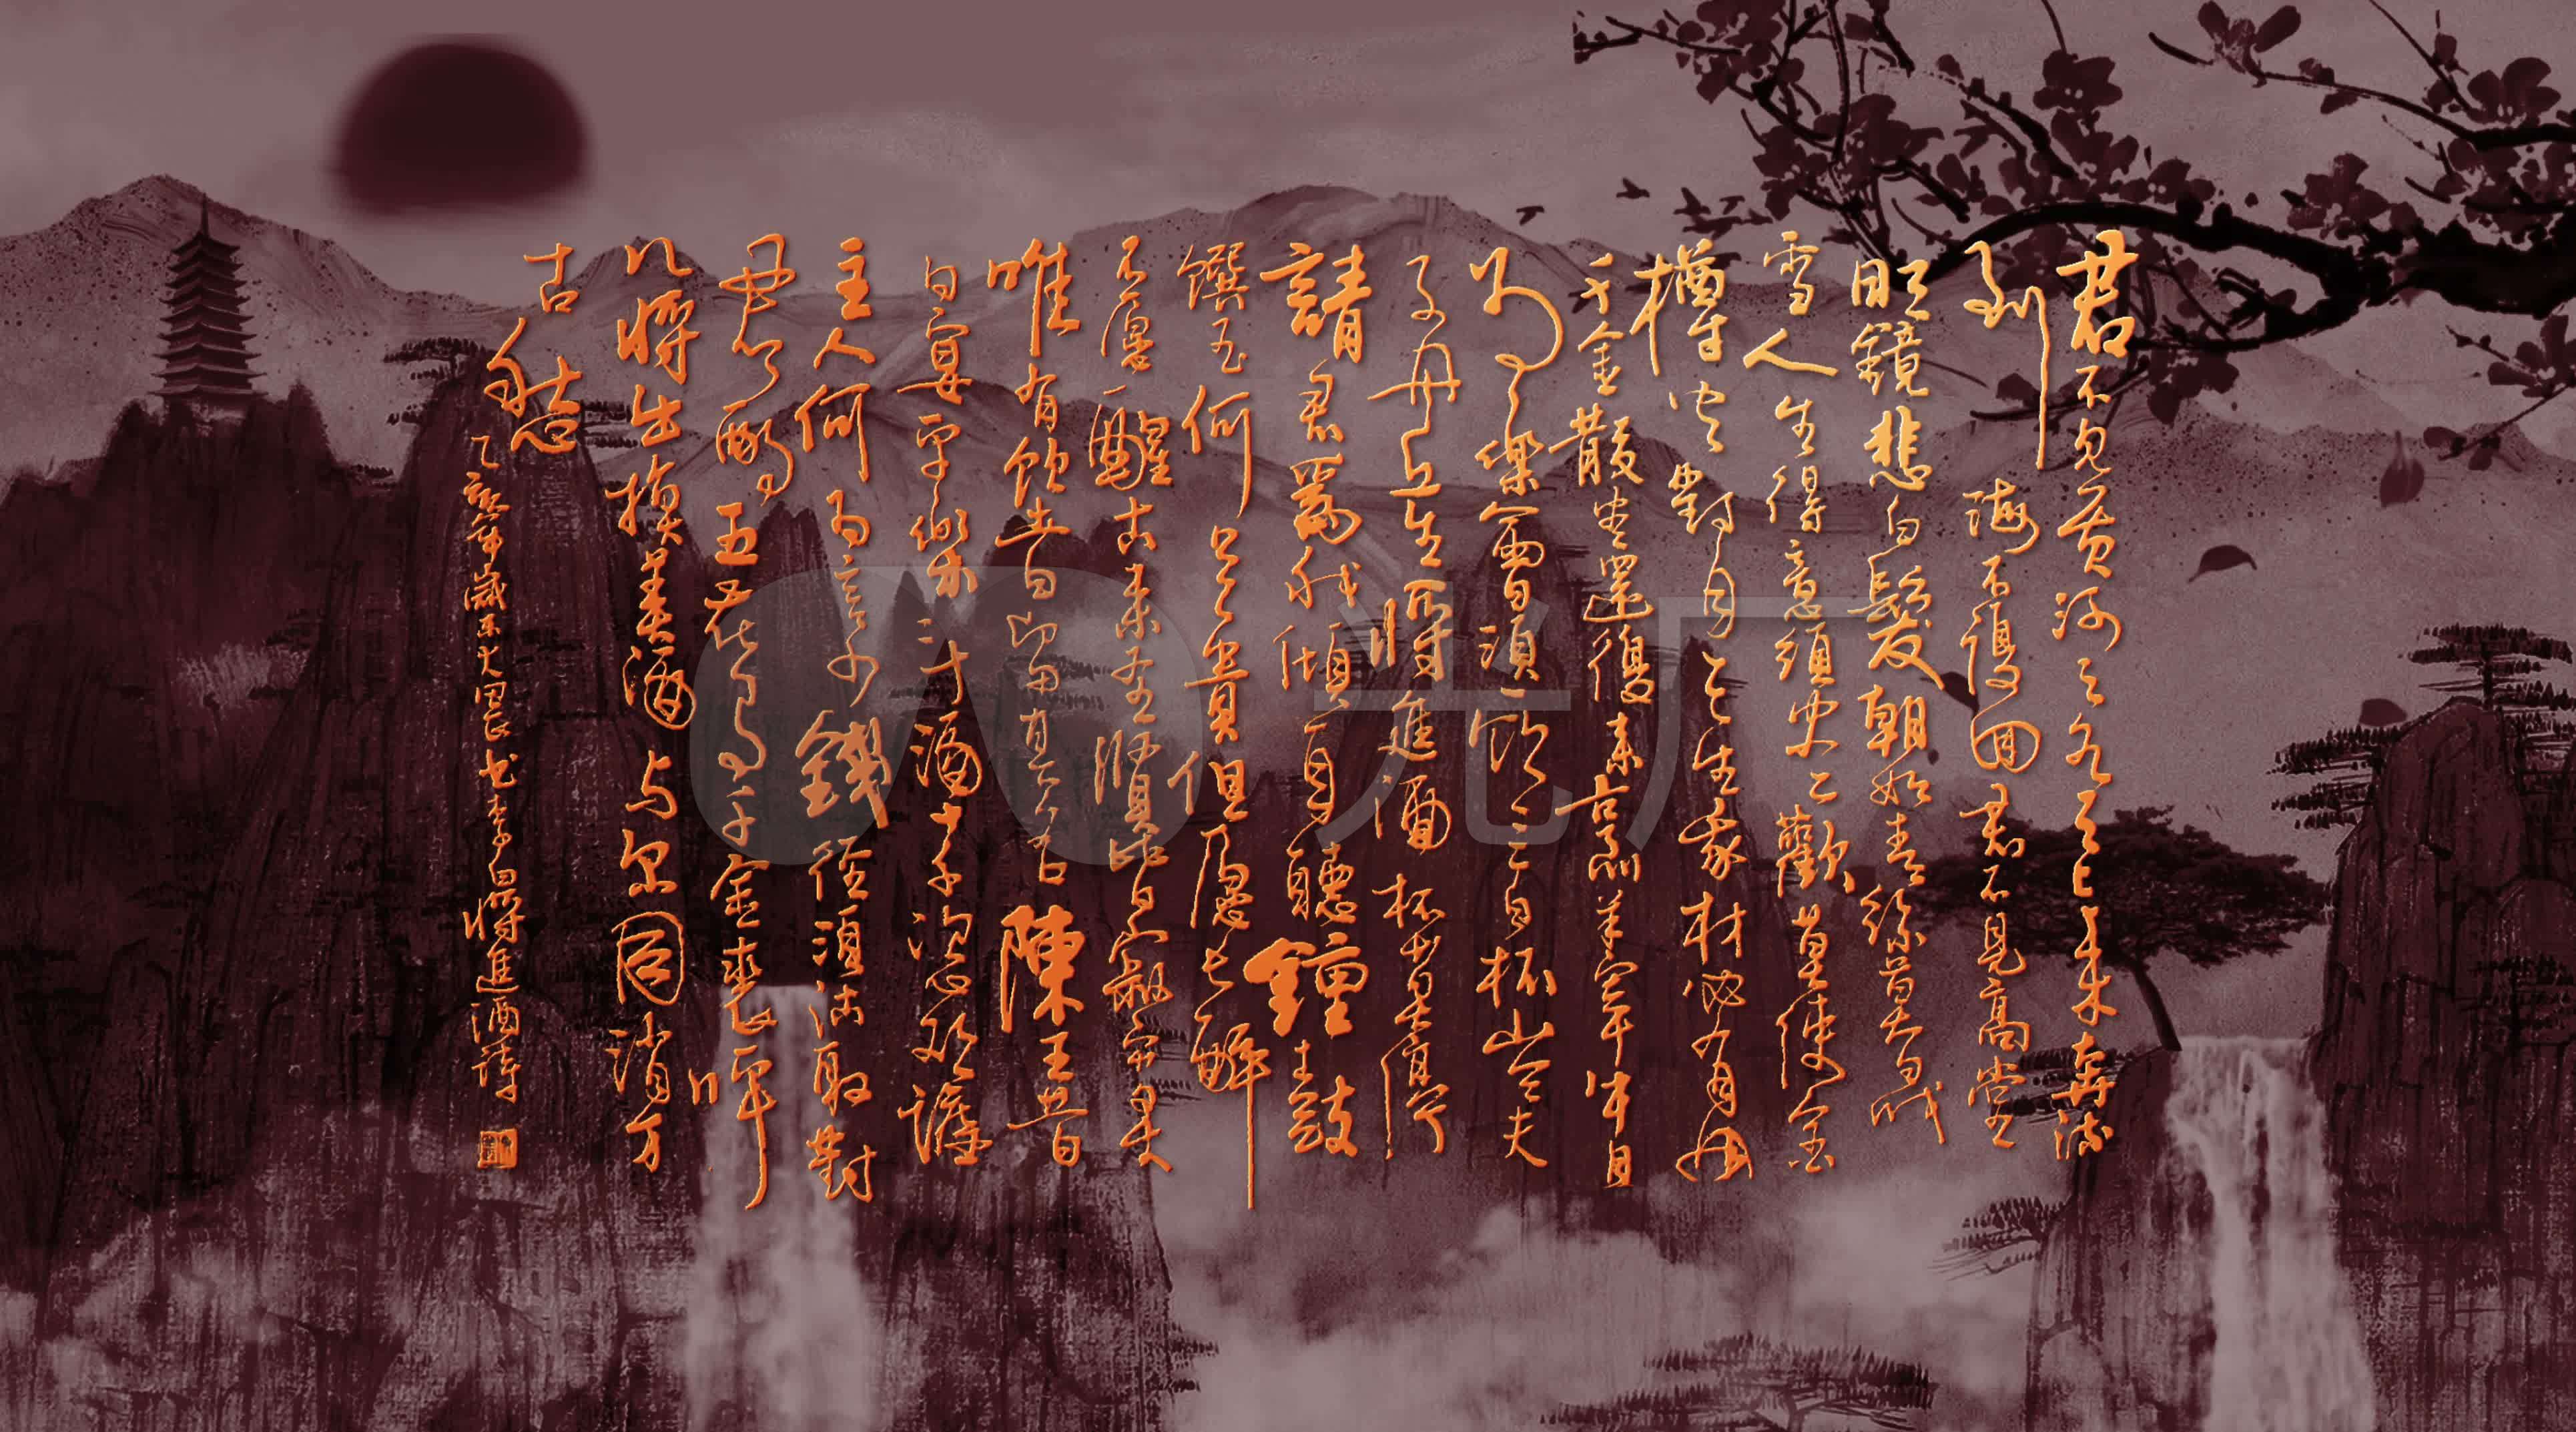 君不見黄河之水天上来奔流
到海不復回君不見高堂
明鏡悲白髮朝如青絲暮成
雪人生得意須尽歡莫使金
樽空對月天生我材必有用
千金散盡還復来烹羊宰牛且
为樂會須一飲三百杯岑夫
子丹丘生將進酒杯莫停
請君為我傾耳聽鐘鼓
饌玉何足貴但願長醉
不願醒古来聖賢皆寂寞
唯有飲者留其名陳王昔
日宴平樂斗酒十千恣歡謔
主人何为言少錢徑須沽取對
君酌五花马千金裘呼
兒將出換美酒与尔同消万
古愁
乙亥年歲末 書李白將進酒詩
光厂